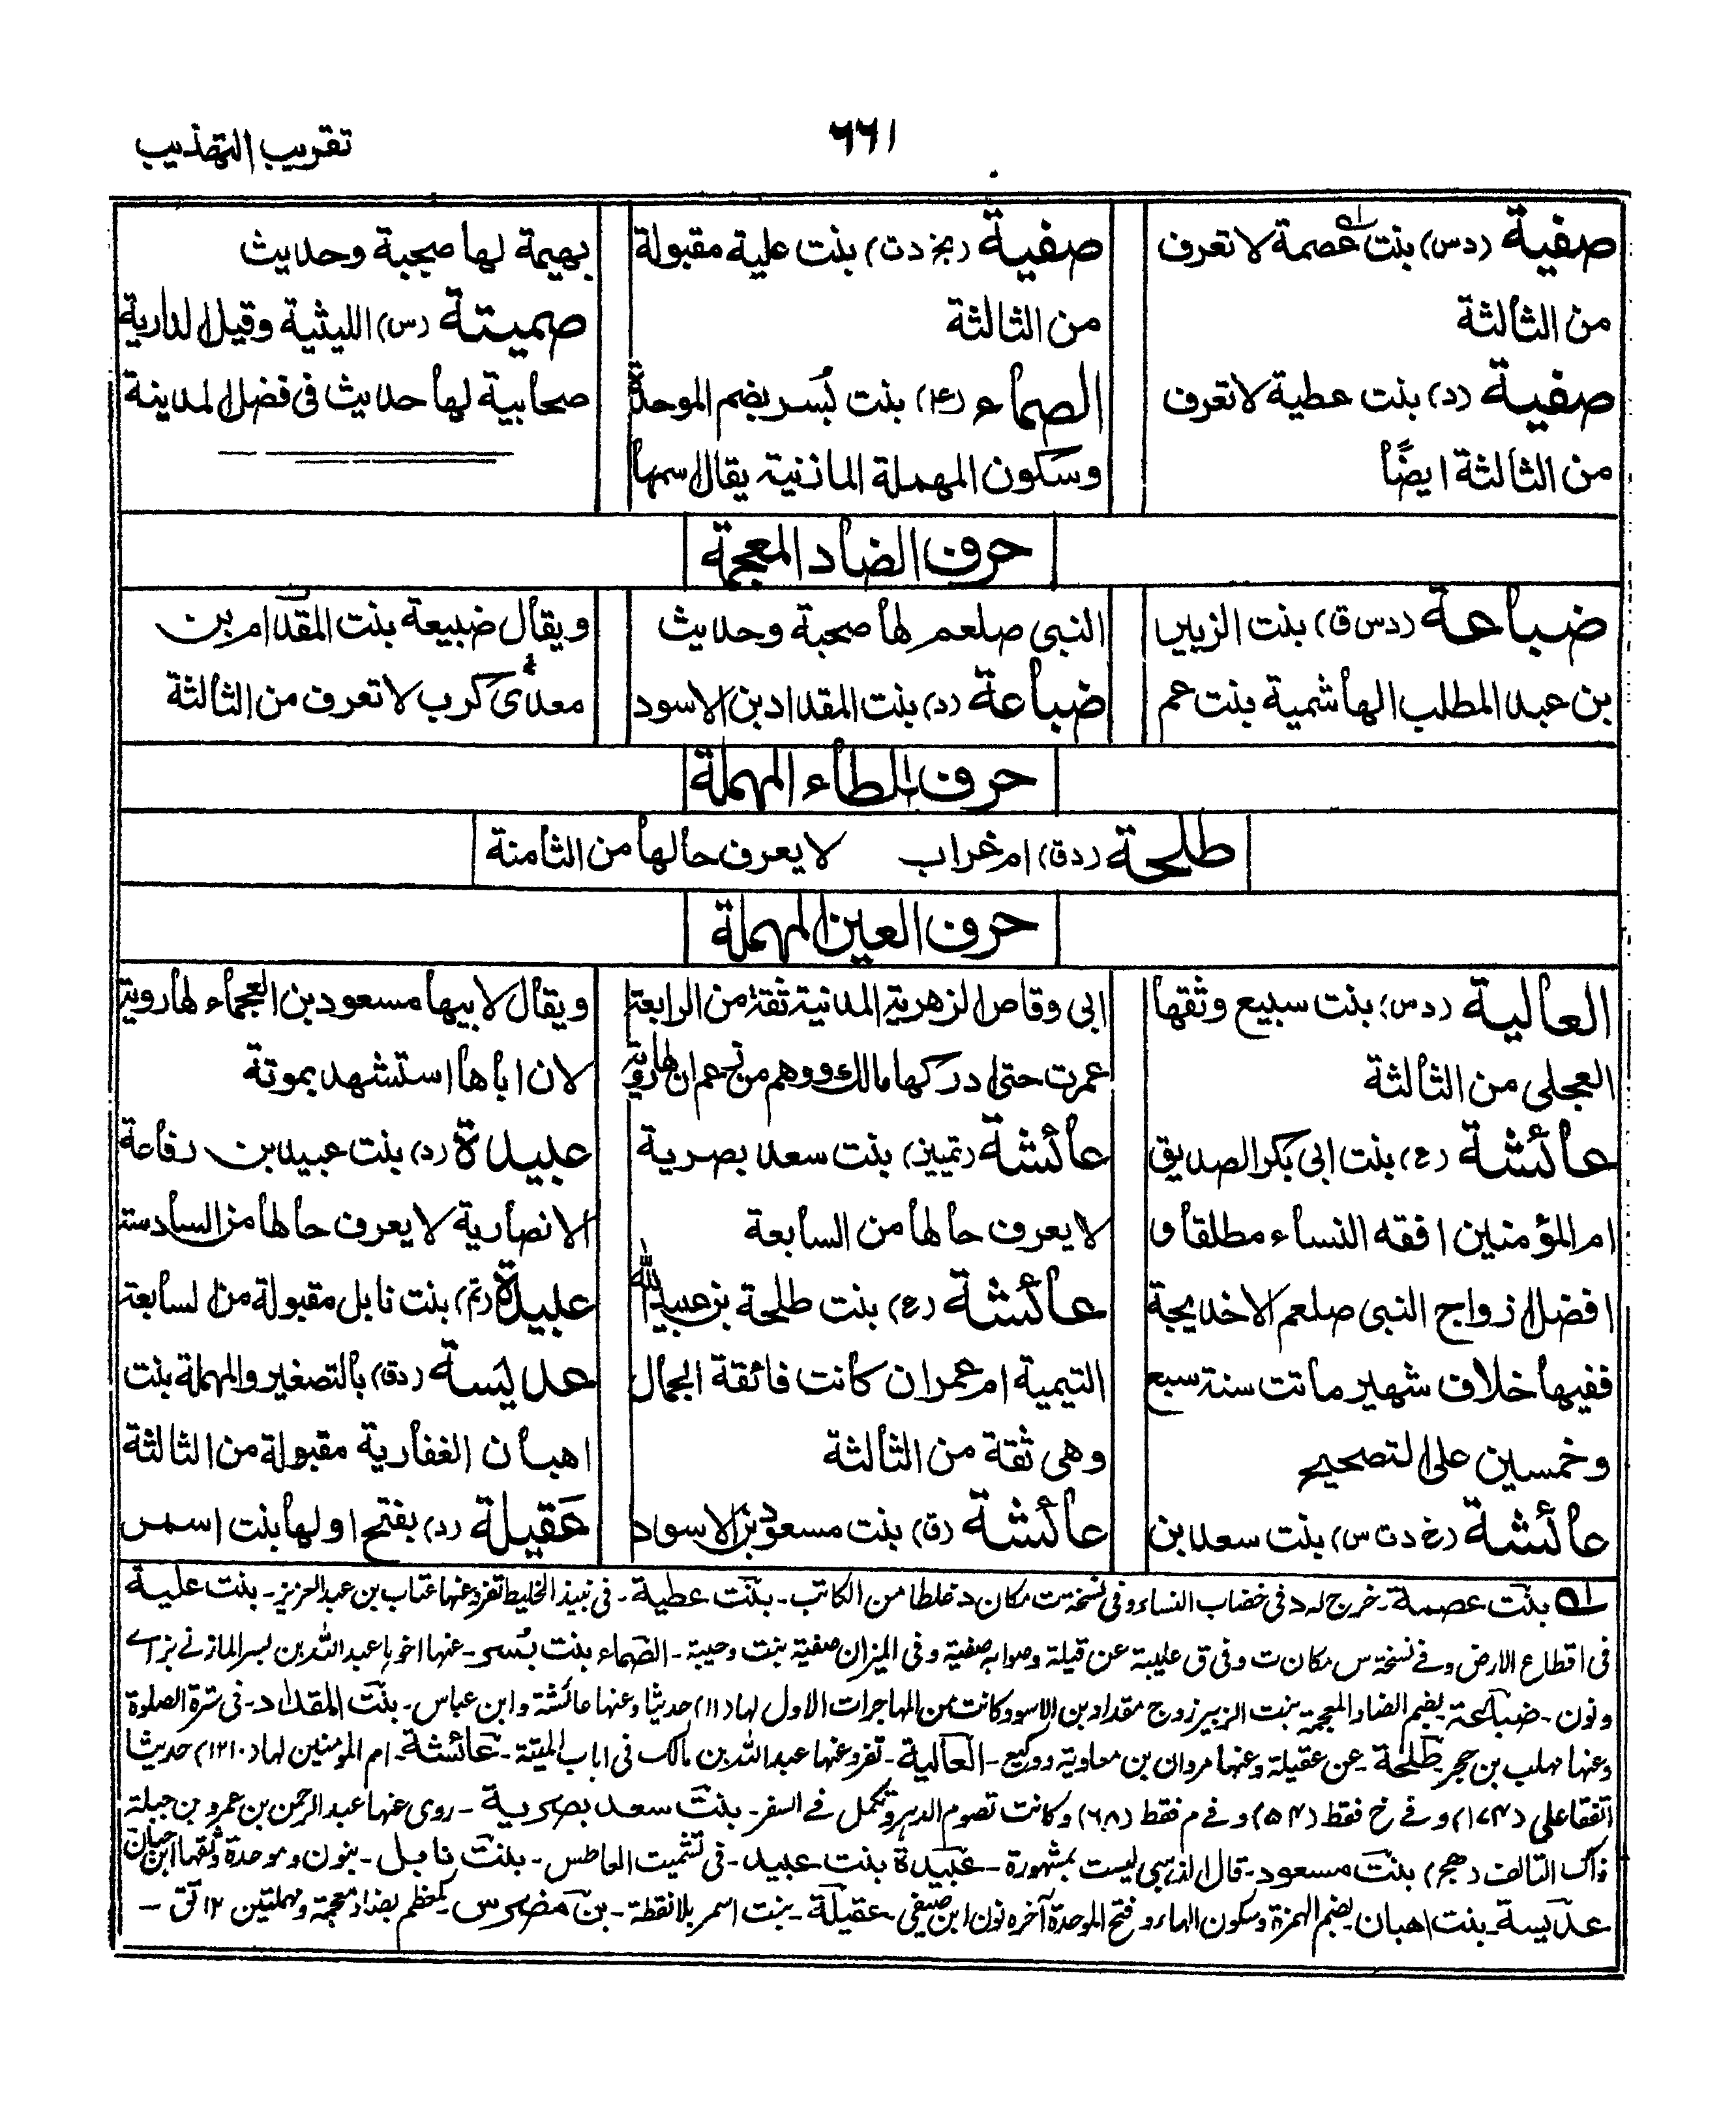 تقریب التهذیب
٦٦١
صفية (دس) بنت عصمة لا تعرف
من الثالثة
صفية (د) بنت عطية لا تعرف
من الثالثة ايضًا
صفية (بخ دت) بنت علية مقبولة
من الثالثة
الصماء (ع۴) بنت بُسر بضم الموحدة
وسكون المهملة المازنية يقال اسمها
بهيمة لها صحبة وحديث
صميتة (س) الليثية وقيل الدارية
صحابية لها حديث فى فضل المدينة
حرف الضاد المعجمة
ضباعة (دس ق) بنت الزبير
بن عبد المطلب الهاشمية بنت عم
النبى صلعم لها صحبة وحديث
ضباعة (د) بنت المقداد بن الاسود
ويقال ضبيعة بنت المقدام بن
معدى كرب لا تعرف من الثالثة
حرف الطاء المهملة
طلحة (دق) ام غراب لا يعرف حالها من الثامنة
حرف العين المهملة
العالية (دس) بنت سبيع وثقها
العجلى من الثالثة
عائشة (ع) بنت ابى بكر الصديق
ام المؤمنين افقه النساء مطلقا و
افضل ازواج النبى صلعم الا خديجة
ففيها خلاف شهير ماتت سنة سبع
وخمسين على التصحيح
عائشة (خ دت س) بنت سعد بن
ابى وقاص الزهرية المدنية ثقة من الرابعة
عمرت حتى ادركها مالك ووهم من زعم ان لها روية
عائشة (تمييز) بنت سعد بصرية
لا يعرف حالها من السابعة
عائشة (ع) بنت طلحة بن عبيد الله
التيمية ام عمران كانت فائقة الجمال
وهى ثقة من الثالثة
عائشة (ق) بنت مسعود بن الاسواد
ويقال لابيها مسعود بن العجماء لها روية
لان اباها استشهد بموتة
عبيدة (د) بنت عبيد بن رفاعة
الانصارية لا يعرف حالها من السادسة
عبيدة (تم) بنت نابل مقبولة من السابعة
عديسة (دق) بالتصغير والمهملة بنت
اهبان الغفارية مقبولة من الثالثة
عَقيلة (د) بفتح اولها بنت اسمر
بنت عصمة۔ خرج له د فى خضاب النساء وفى نسخة ت مكان د غلطا من الكاتب۔ بنت عطية۔ فى نبيذ الخليط تفرد عنها عتاب بن عبد العزيز۔ بنت علية
فى اقطاع الارض وفے نسخة س مكان ت وفى ق عليبة عن قيلة وصوابه صفية وفى الميزان صفية بنت وحيبة۔ الصماء بنت بُسر۔ عنها اخوها عبد الله بن بسر المازنے بزاے
ونون۔ ضباعة بضم الضاد المعجمة بنت الزبير زوج مقداد بن الاسود وكانت من المهاجرات الاول لها (١١) حديثا وعنها عائشة وابن عباس۔ بنت المقداد۔ فى سترة الصلوة
وعنها مهلب بن حجر طلحة۔ عن عقيلة وعنها مروان بن معاوية ووكيع۔ العالية۔ تفرد عنها عبد الله بن مالك فى اهاب الميتة۔ عائشة۔ ام المومنين لها (١٢١٠) حديثا
اتفقا على (١٧۴) وفے خ فقط (٥۴) وفے م فقط (٦٨) وكانت تصوم الدهر وتكمل فے السفر۔ بنت سعد بصرية۔ روى عنها عبد الرحمن بن عمرو بن جبلة
ذاك التالف (هجر) بنت مسعود۔ قال الذهبى ليست بمشهورة۔ عبيدة بنت عبيد۔ فى تشميت العاطس۔ بنت نابل۔ بنون وموحدة وثقها ابن حبان
عديسة۔ بنت اهبان بضم الهمزة وسكون الهاء وفتح الموحدة آخره نون ابن صيفى۔ عقيلة۔ بنت اسمر بلا نقطة۔ بن مضرس۔ كمعظم بضاد معجمة ومهملتين ١٢ تق۔